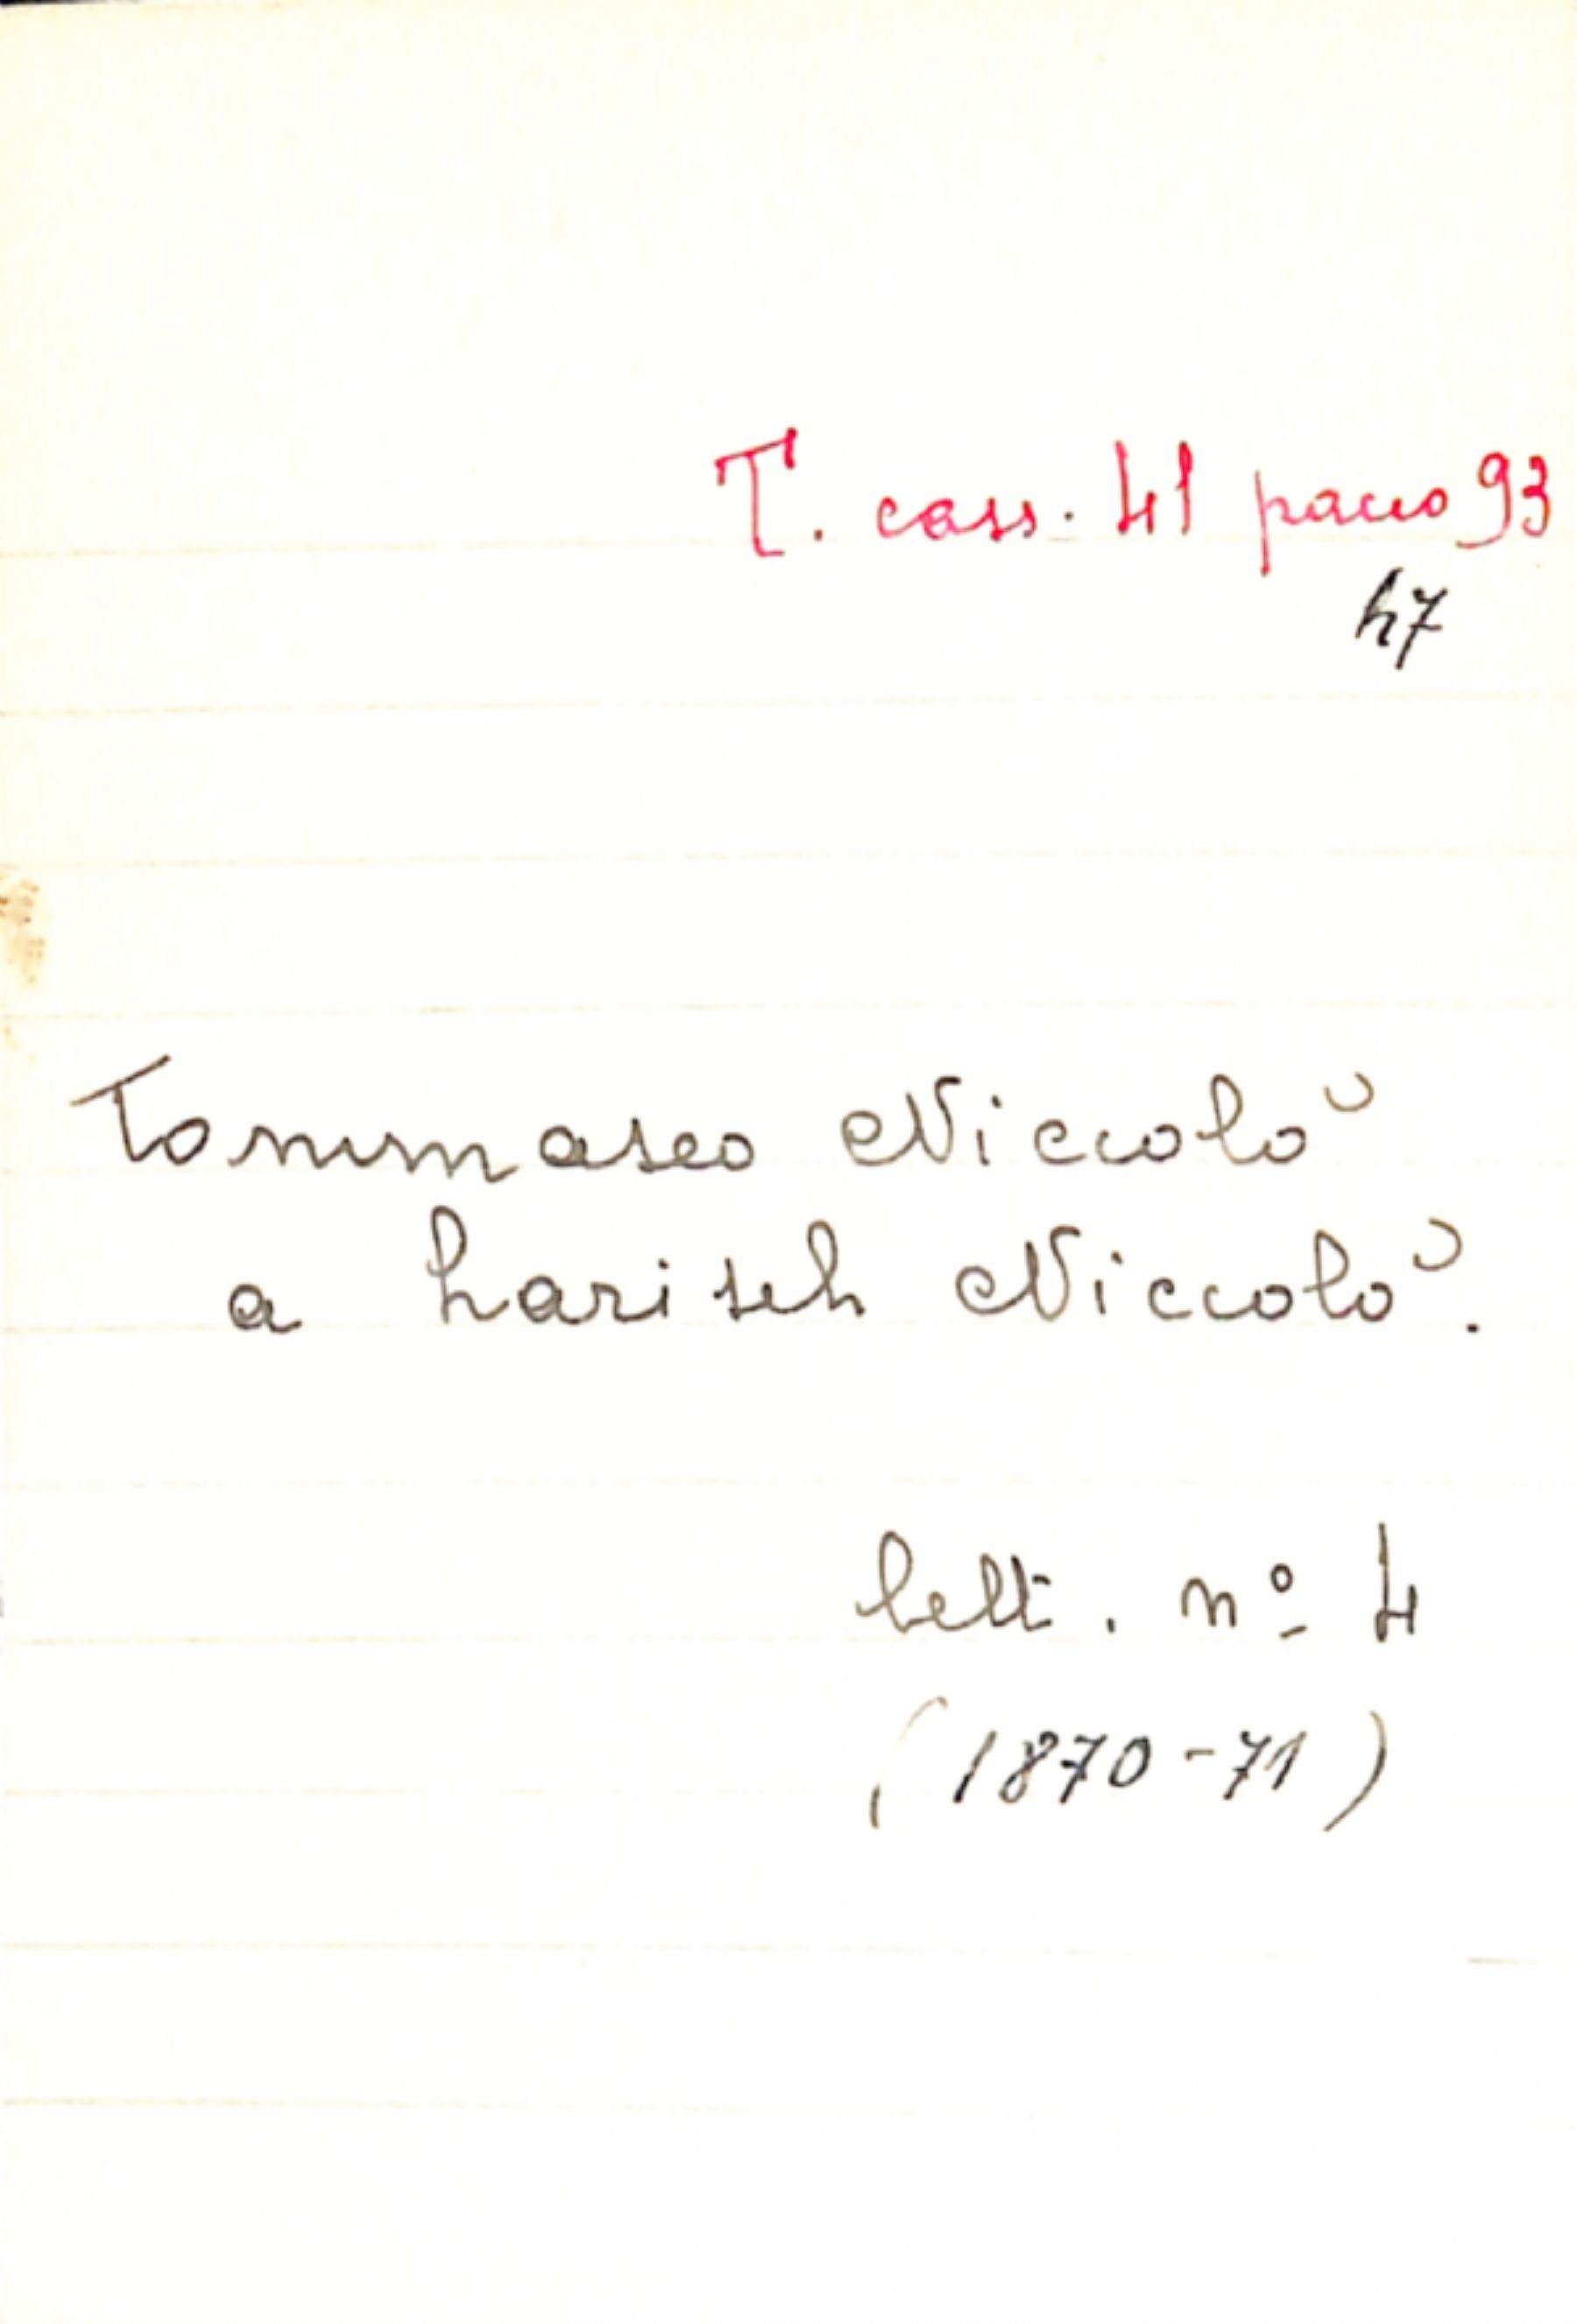 T. cass. 41 pacco 93
h7
Tommaseo Niccolò
a Larisch Niccolò.
lett. nº 4
(1870-71)